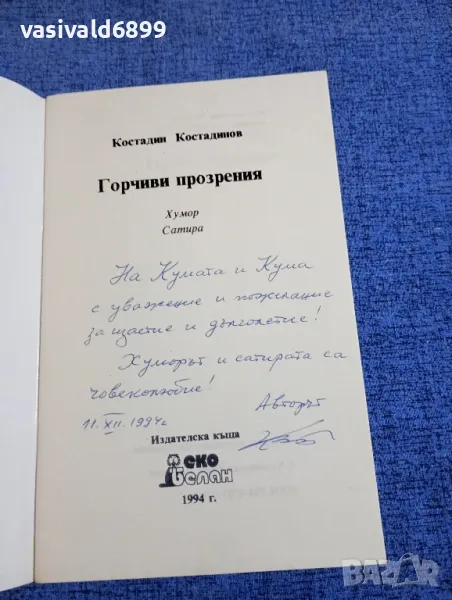 vasivald6899
Костадин Костадинов
Горчиви прозрения
Хумор
Сатира
На Кумата и Кума
с уважение и пожелание
за щастие и дълголетие!
Хуморът и сатирата са
човеколюбие!
11.XII.1994г Авторът
Издателска къща
еко
белан
1994 г.
BAZAR